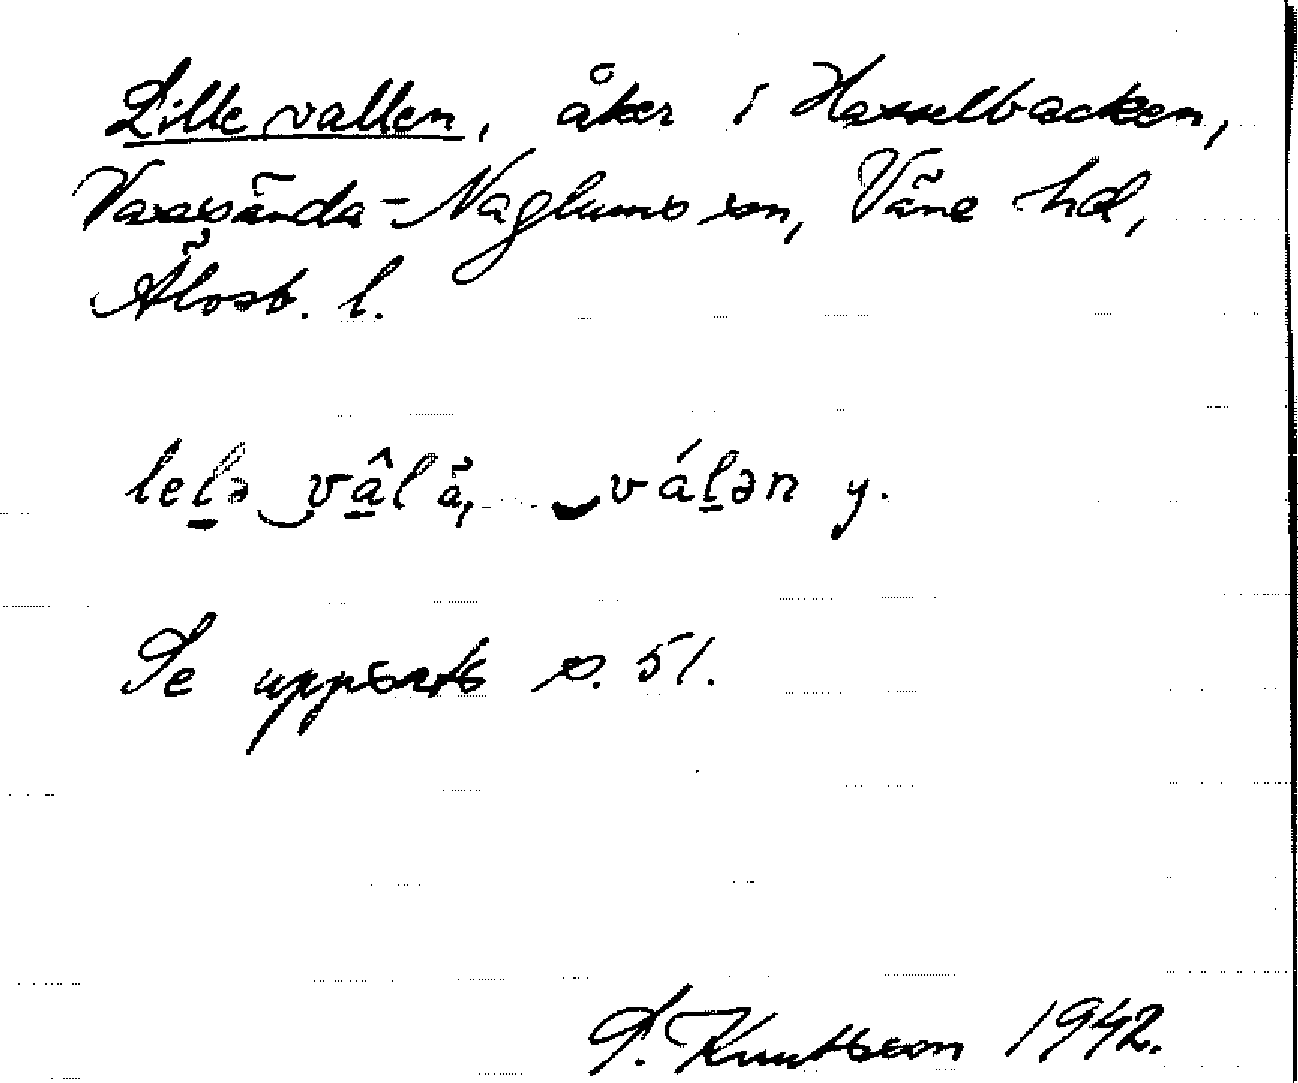 Lille vallen, åker i Hasselbacken,
Vassända-Naglums sn, Väne hd,
Älvsb. l.
lel̲ə‿vâ̲lå, ‿vál̲ən y.
Se uppsats s. 51.
Knuttsson 1942.